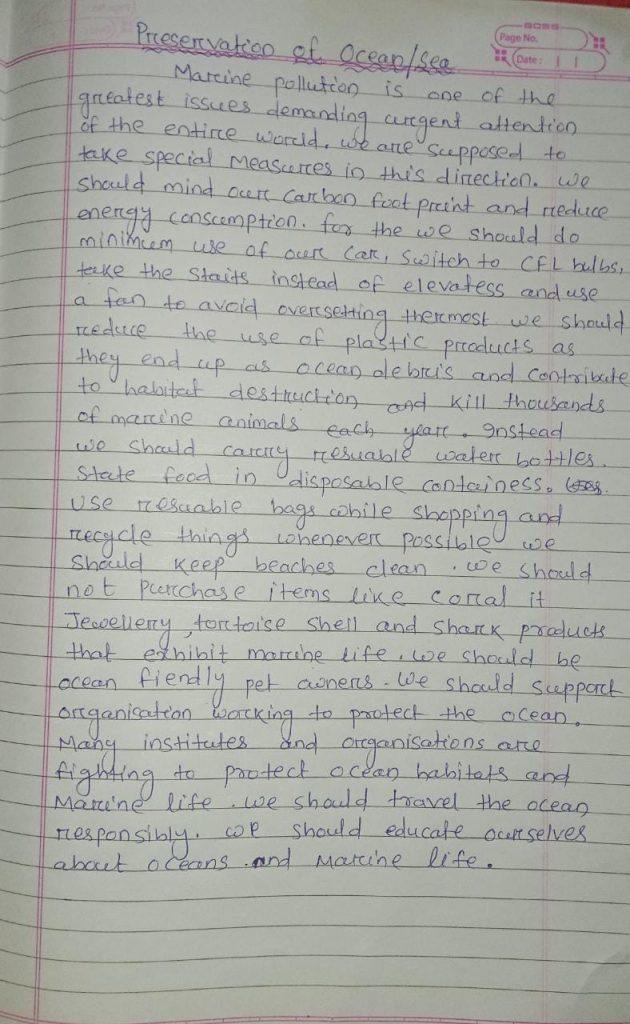 BOSS
Page No.
Date:
Preservation of Ocean/Sea
Marine pollution is one of the
greatest issues demanding urgent attention
of the entire world. we are supposed to
take special Measures in this direction. we
should mind our Carbon foot print and reduce
energy consumption. for the we should do
minimum use of our Car, switch to CFL bulbs,
take the Staits instead of elevatess and use
a fan to avoid oversetting thermost we should
reduce the use of plastic products as
they end up as ocean debris and contribute
to habitat destruction and kill thousands
of marine animals each year. Instead
we should carry resuable water bottles.
State food in disposable containess.
Use resuable bags while shopping and
recycle things whenever possible we
should keep beaches clean. we should
not purchase items like coral it
Jewellery, tortoise shell and shark products
that exhibit marine life. we should be
ocean fiendly pet owners. We should support
organisation working to protect the ocean.
Many institutes and organisations are
fighting to protect ocean habitats and
Marine life. we should travel the ocean
responsibly. we should educate ourselves
about oceans and Marine life.